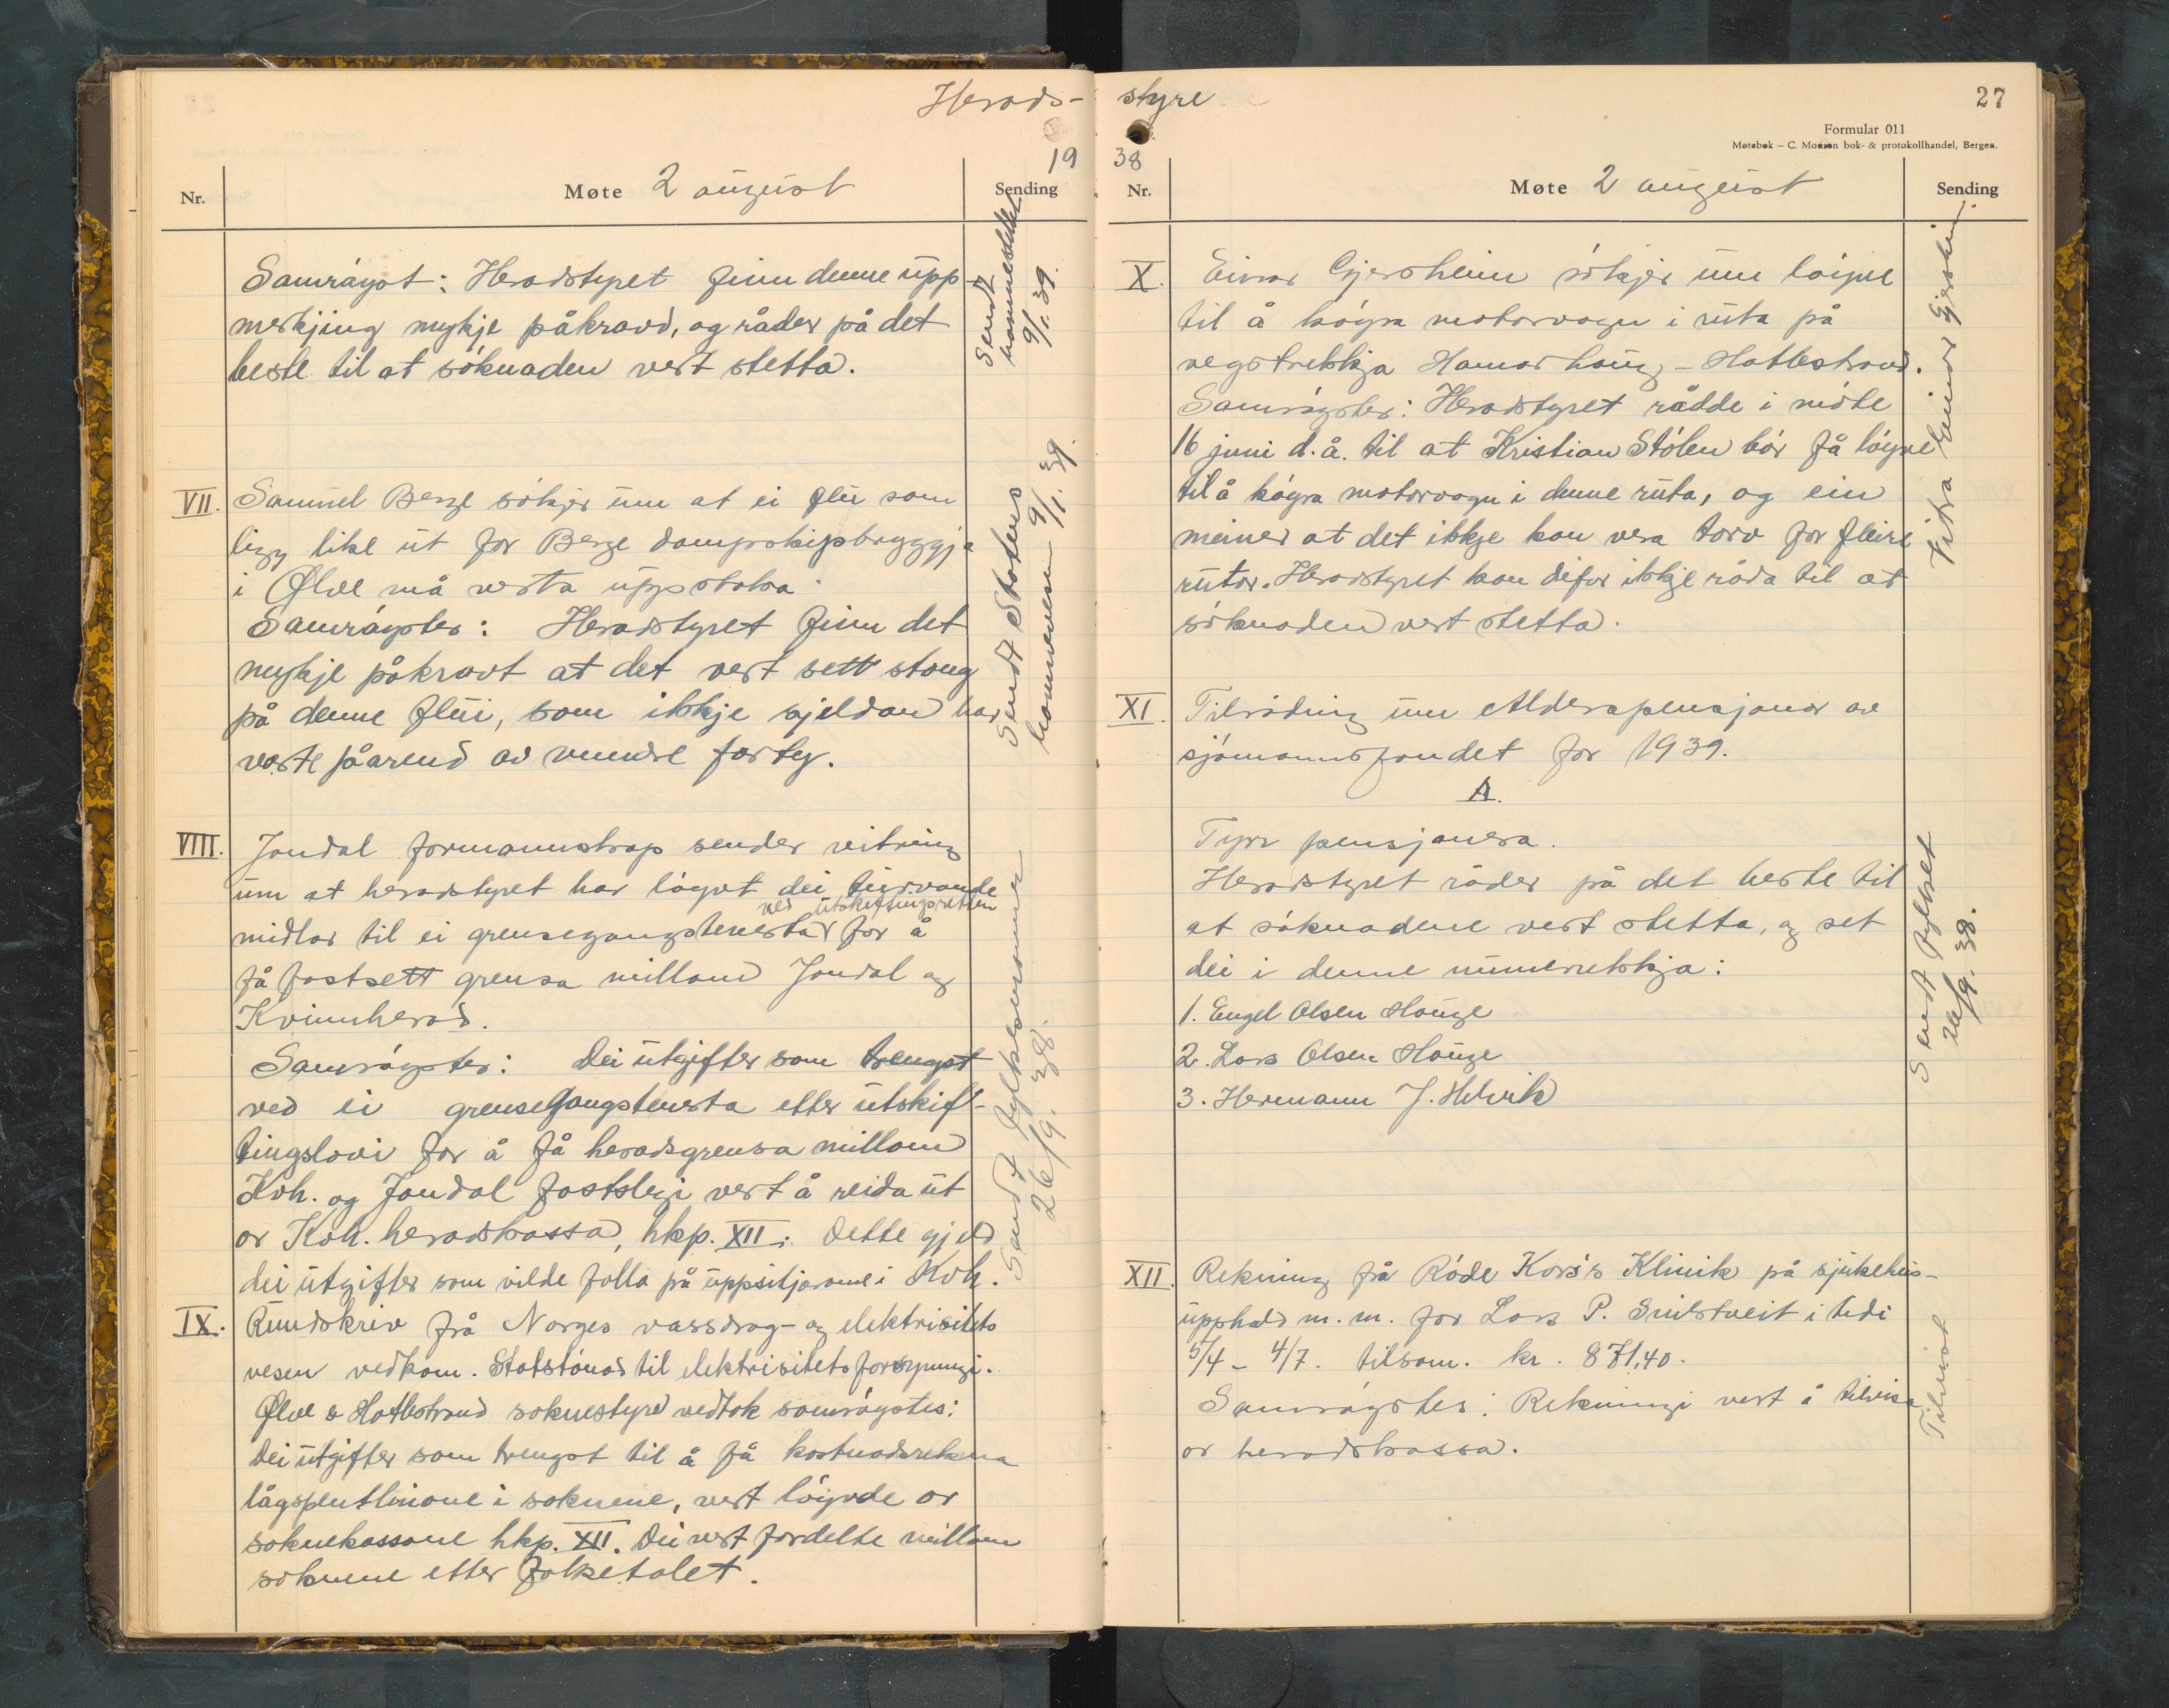 Herads- styre
27
Formular 011
Møtebok – C. Monsen bok- & protokollhandel, Bergen.
19 38
Nr.
Møte 2 august
Sending
Samrøyst: Heradstyret finn denne upp
merkjing mykje påkravd, og råder på det
beste til at søknaden vert stetta.
Sendt
9/1. 39.
VII. Samuel Berge søkjer um at ei flu som
ligg like ut for Berge dampskipsbryggja
i Ølve må verta uppstaka.
Samrøystes: Heradstyret finn det
mykje påkravt at det vert sett stong
på denne flui, som ikkje sjeldan har
vorte påarend av mindre farty.
Sendt Statens
havnevesen 9/1. 39.
VIII. Jondal formannskap sender vitring
um at heradstyret har løyvt dei turvande
ved utskiftingsretten
midlar til ei grensegangstenesta for å
få fastsett grensa millom Jondal og
Kvinnherad.
Samrøystes: Dei utgifter som trengst
ved ei grensegangstenesta etter utskift-
tingslovi for å få heradsgrensa millom
Kvh. og Jondal fastslegi vert å reida ut
or Kvh. heradskassa, hkp. XII. Dette gjeld
dei utgifter som vilde falla på uppsitjarane i Kvh.
Sendt fylkesmannen
26/9. 38.
IX. Rundskriv frå Norges vassdrag- og elektrisitets
vesen vedkom. Statstønad til elektrisitetsforsynungi.
Ølve & Hatlestrand soknestyre vedtok samrøystes:
Dei utgifter som trengst til å få kostnadsrekna
lågspentlinone i soknene, vert løyvde or
soknekassone hkp. XII. Dei vert fordelte millom
soknene etter folketalet.
Nr.
Møte 2 august
Sending
X. Einar Gjersheim søkjer um løyve
til å køyra motorvogn i ruta på
vegstrekkja Hamarhaug – Hatlestrand.
Samrøystes: Heradstyret rådde i møte
16 juni d.å. til at Kristian Stølen bør få løyve
til å køyra motorvogn i denne ruta, og ein
meiner at det ikkje kan vera torv for fleire
rutor. Heradstyret kan difor ikkje råda til at
søknaden vert stetta.
Vitra Einar Gjersheim.
XI. Tilråding um Alderspensjonar av
sjømannsfondet for 1939.
A.
Tyrr pensjonera.
Heradstyret råder på det beste til
at søknadene vert stetta, og set
dei i denne numerrekkja:
1. Engel Olsen Hauge
2. Lars Olsen Hauge
3. Hermann J. Helvik
Sendt fylket
26/9. 38.
XII. Rekning frå Røde Kors's Klinik på sjukehus-
upphald m. m. for Lars P. Snilstveit i tidi
5/4 – 4/7. tilsam. kr. 871,40.
Samrøystes: Rekningi vert å tilvisa
or heradskassa.
Tilvist